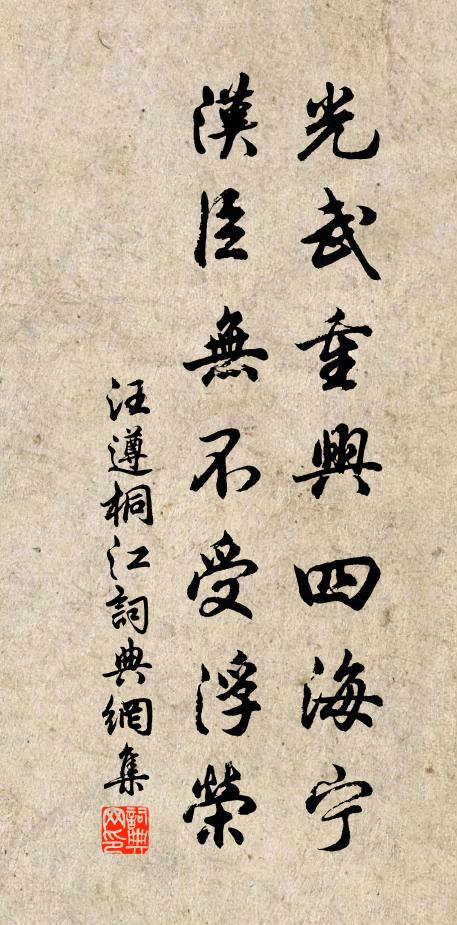 光武重興四海宁
漢臣無不受浮榮
汪遵桐江詞典網集
詞典网印